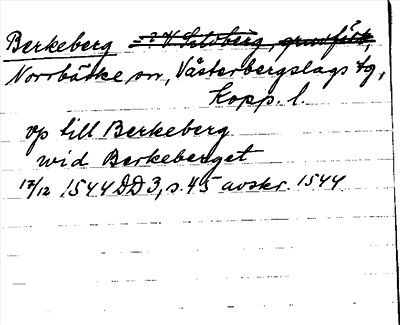 Berkeberg = ? V. Silvberg, gruvfält,
Norrbärke sn, Västerbergslags tg,
Kopp. l.
vp till Berkeberg
wid Berkeberget
17/12 1544 DD 3, s. 45 avskr. 1544